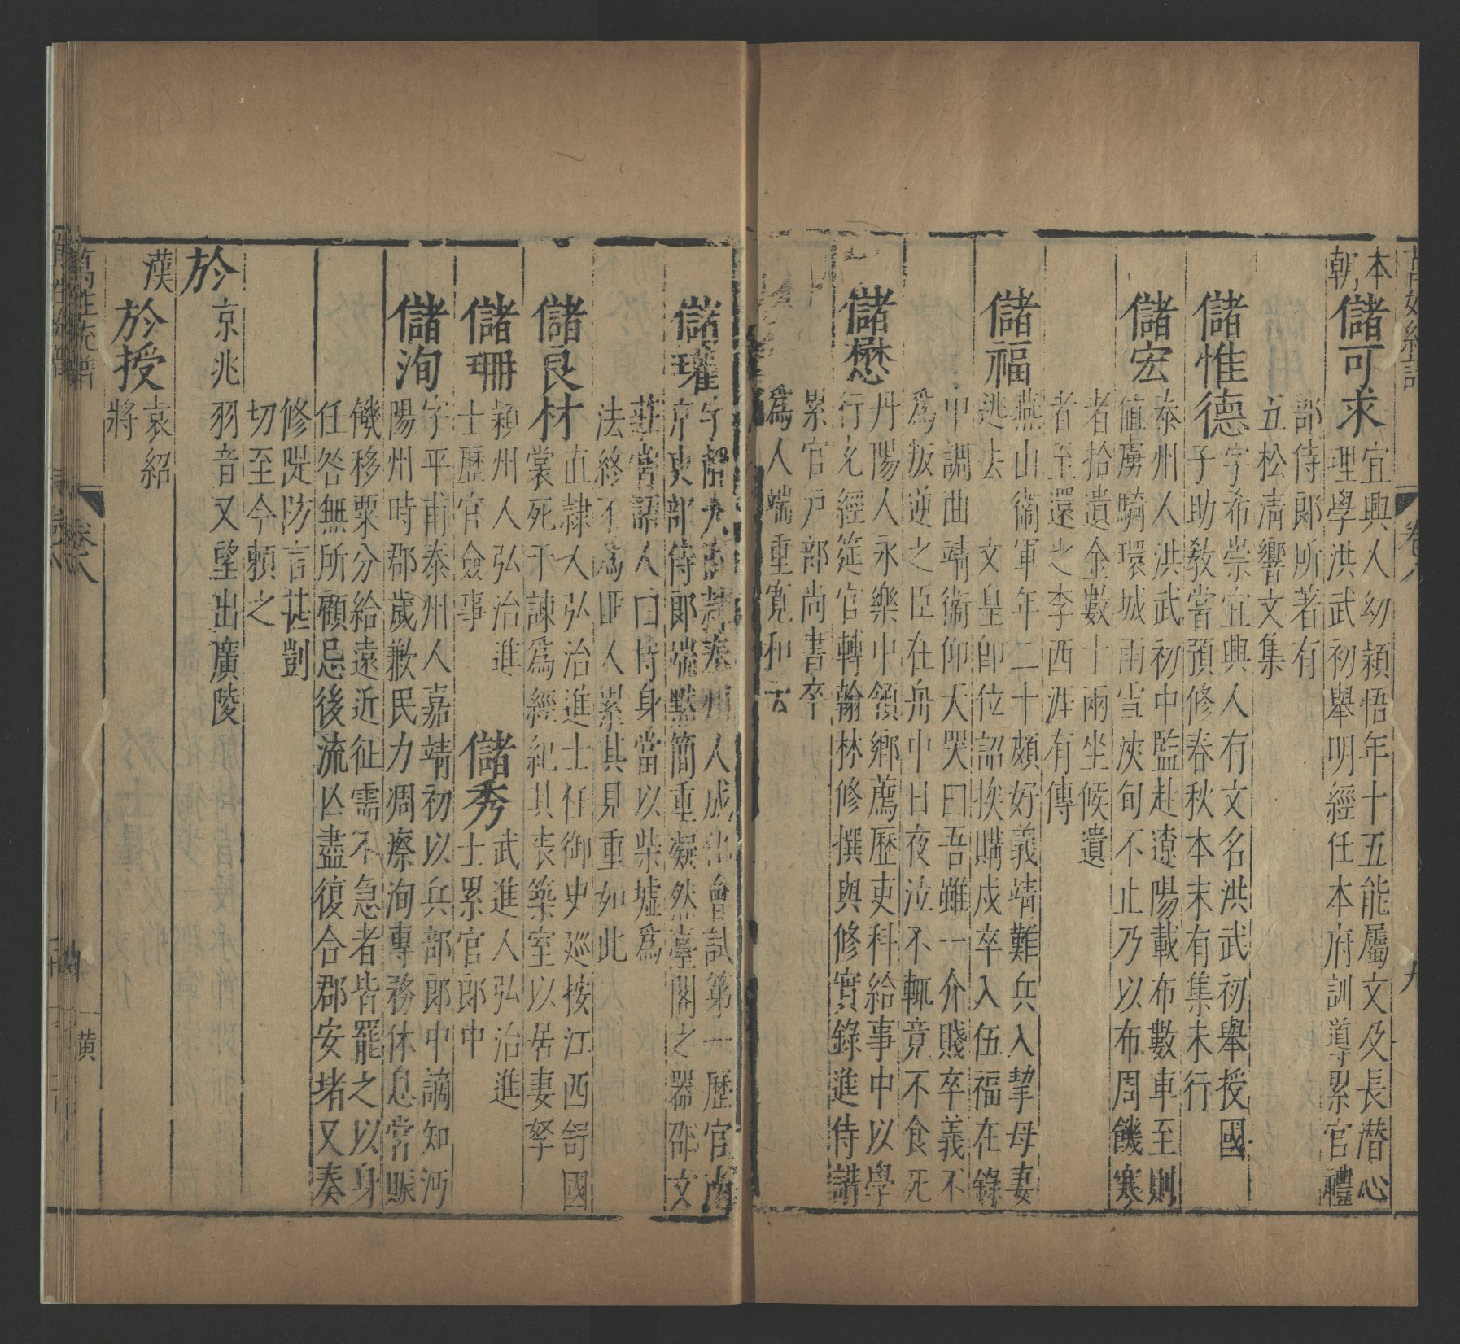 萬姓統譜
卷八
九
本朝
儲可求
宜興人幼穎悟年十五能屬文及長潛心
理學洪武初舉明經任本府訓導累官禮
部侍郎所著有
五松清響文集
儲惟德
字希崇宜興人有文名洪武初舉授國
子助教嘗預修春秋本末有集未行
儲宏
泰州人洪武初中監赴遼陽載布數車至則
值虜騎環城雨雪浹旬不止乃以布周饑寒
者拾遺金數十兩坐候遺
者至還之李西涯有傳
儲福
燕山衞軍年二十頗好義靖難兵入挈母妻
逃去文皇卽位詔挨購戍卒入伍福在錄
中調曲靖衞仰天哭曰吾雖一介賤卒義不
爲叛逆之臣在舟中日夜泣不輒竟不食死
儲懋
丹陽人永樂中領鄉薦歷吏科給事中以學
行充經筵官轉翰林修撰與修實錄進侍講
累官戸部尚書卒
爲人端重寬和云
儲瓘
字靜夫泰州人成化會試第一歷官南
京吏部侍郎端默簡重凝然臺閣之器邵文
莊嘗語人曰持身當以柴墟爲
法終不爲匪人累其見重如此
儲良材
直隷人弘治進士任御史廵按江西哿國
裳死于諫爲經紀其丧築室以居妻孥
儲珊
穎州人弘治進
士歷官僉事
儲秀
武進人弘治進
士累官郎中
儲洵
字平甫泰州人嘉靖初以兵部郎中謫知沔
陽州時郡歲歉民力凋瘵洵專務休息常賑
饑移粟分給遠近征需不急者皆罷之以身
任咎無所顧忌後流亾盡復合郡安堵又奏
修隄防言甚剴
切至今頼之
於
京兆
羽音又望出廣陵
漢
於授
袁紹
將
萬姓統譜
卷八
黃